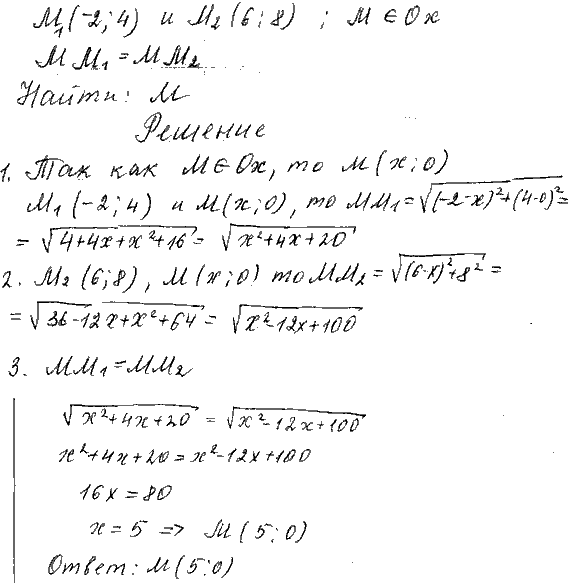 M₁(-2; 4) и M₂(6; 8) ; M ∈ Ox
MM₁ = MM₂
Найти: M
Решение
1. Так как M ∈ Ox, то M(x; 0)
M₁(-2; 4) и M(x; 0), то MM₁ = √((-2-x)²+(4-0)²) =
= √(4+4x+x²+16) = √(x²+4x+20)
2. M₂(6; 8), M(x; 0) то MM₂ = √((6-x)²+8²) =
= √(36-12x+x²+64) = √(x²-12x+100)
3. MM₁ = MM₂
√(x²+4x+20) = √(x²-12x+100)
x²+4x+20 = x²-12x+100
16x = 80
x = 5 => M(5; 0)
Ответ: M(5; 0)